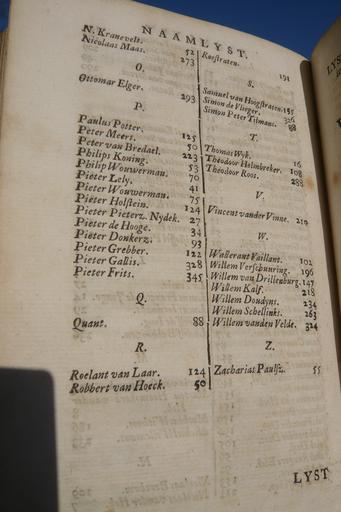 NAAMLYST.
N. Kranevelt. 52
Nicolaas Maas. 273
O.
Ottomar Elger. 293
P.
Paulus Potter. 125
Peter Meers. 50
Peter van Bredael. 223
Philips Koning. 53
Philip Wouwerman. 70
Pieter Lely. 41
Pieter Wouwerman. 75
Pieter Holstein. 124
Pieter Pietersz. Nydek. 27
Pieter de Hooge. 34
Pieter Donkerz. 93
Pieter Grebber. 122
Pieter Gallis. 328
Pieter Frits. 345
Q.
Quant. 88
R.
Roelant van Laar. 124
Robbert van Hoeck. 50
Roestraten. 191
S.
Samuel van Hoogstraten. 155
Simon de Vlieger. 326
Simon Peter Tilmans. 88
T.
Thomas Wyk. 16
Theodoor Helmbreker. 108
Theodoor Roos. 288
V.
Vincent vander Vinne. 210
W.
Wallerant Vaillant. 102
Willem Verschuuring. 196
Willem van Drillenburg. 147
Willem Kalf. 218
Willem Doudyns. 234
Willem Schellinks. 263
Willem vanden Velde. 324
Z.
Zacharias Paulsz. 55
LYST